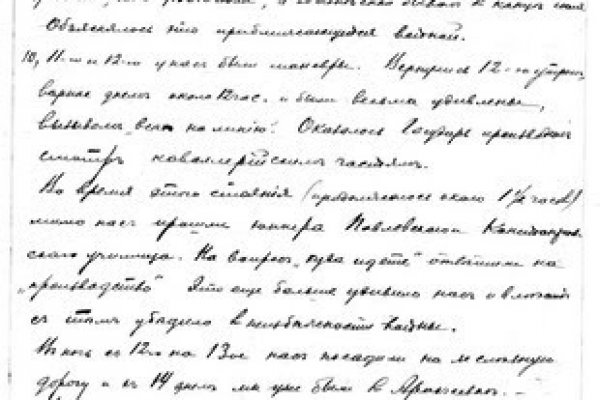 Объяснялось это приближающейся войной.
10, 11-го и 12-го у нас были маневры. Вернулись 12-го утром,
вернее днем около 12 час. и были весьма удивлены,
вызовом "всех на линию". Оказалось Государь производит
смотр кавалерийским частям.
Во время этого стояния (продолжалось около 1 1/2 часов)
мимо нас прошли юнкера Павловского
училища. На вопрос "куда идете" ответили на
"производство" Это еще больше удивило нас и
с этим убедило в неизбежности войны.
В ночь с 12го на 13ое нас посадили на железную
дорогу и 14 днем мы уже были в